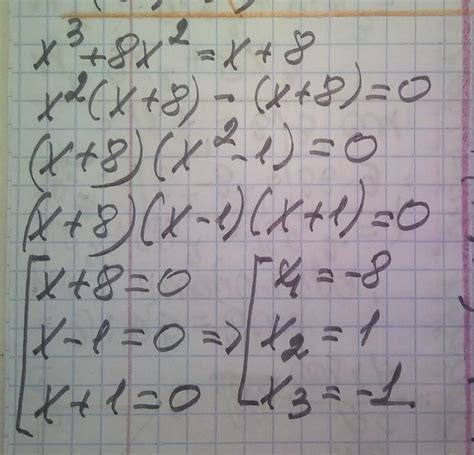 x³+8x²=x+8
x²(x+8)-(x+8)=0
(x+8)(x²-1)=0
(x+8)(x-1)(x+1)=0
[x+8=0 [x₁=-8
x-1=0 => x₂=1
x+1=0 x₃=-1